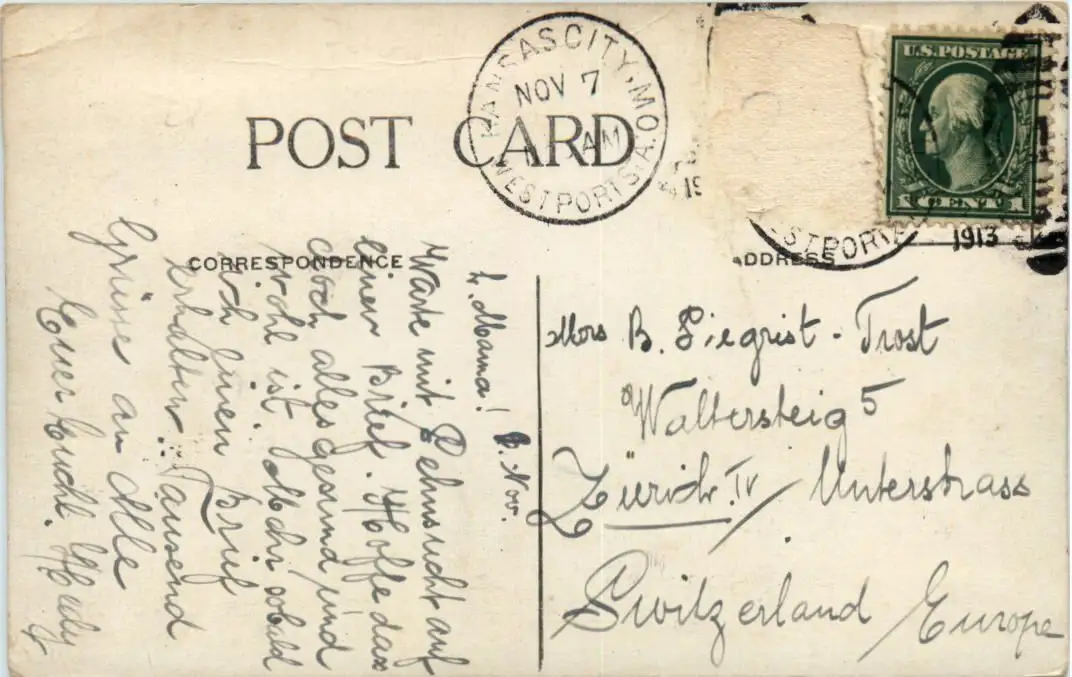 POST CARD
KANSAS CITY, MO.
NOV 7
AM
WESTPORT STA.
U.S. POSTAGE
1 CENT 1
1913
STPORT
CORRESPONDENCE
ADDRESS
L. Mama! Nov.
Warte mit Sehnsucht auf
einen Brief. Hoffe dass
doch alles gesund und
wohl ist. Mehr sobald
ich Euren Brief
erhalten. Tausend
Grüsse an Alle
Euer
Mrs B. Siegrist - Trost
Waltersteig 5
Zürich IV / Unterstrass
Switzerland Europe